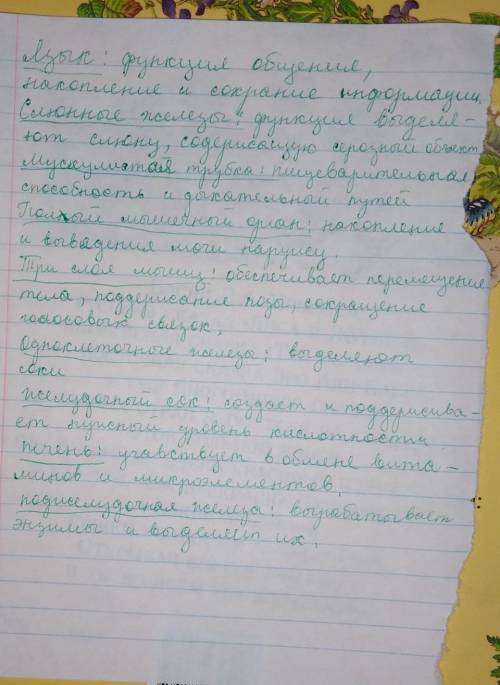 Язык: функция общения,
накопление и сохрание информации.
Слюнные железы: функция выделя-
ют слюну, содержащую серозный
Мускулистая трубка: пищеварительная
способность и дыхательной путей
Полый мышечный орган: накопление
и выведения мочи наружу.
Три слоя мышц: обеспечивает перемещение
тела, поддержание позы, сокращение
голосовых связок.
Одноклеточные железы: выделяют
соки
желудочный сок: создает и поддержива-
ет нужный уровень кислотности
печень: учавствует в обмене вита-
минов и микроэлементов.
поджелудочная железа: вырабатывает
энзимы и выделяет их.